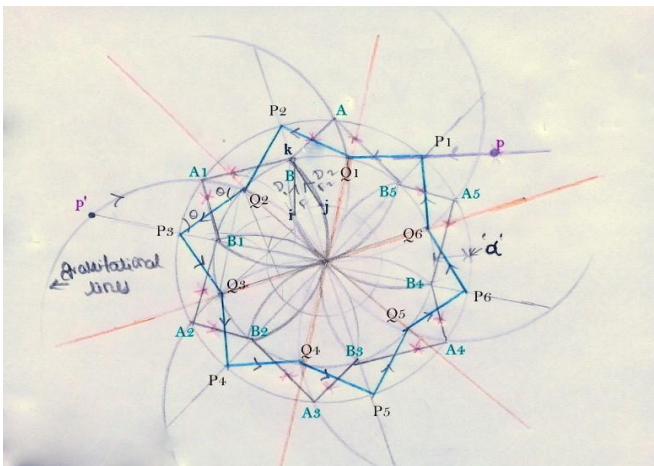 P2
A
k
P1
P
A1
B
Q1
B5
A5
P'
Q2
i
j
P3
B1
Q6
'α'
gravitational
lines
Q3
B4
P6
Q5
A2
B2
Q4
B3
A4
P4
A3
P5